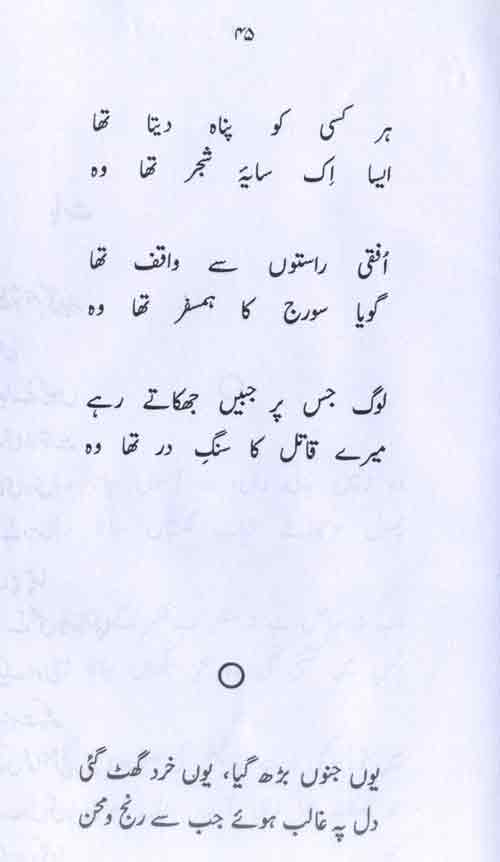 ۴۵
ہر کسی کو پناہ دیتا تھا
ایسا اِک سایۂ شجر تھا وہ
اُفقی راستوں سے واقف تھا
گویا سورج کا ہمسفر تھا وہ
لوگ جس پر جبیں جھکاتے رہے
میرے قاتل کا سنگِ در تھا وہ
یوں جنوں بڑھ گیا، یوں خرد گھٹ گئی
دل پہ غالب ہوئے جب سے رنج و محن